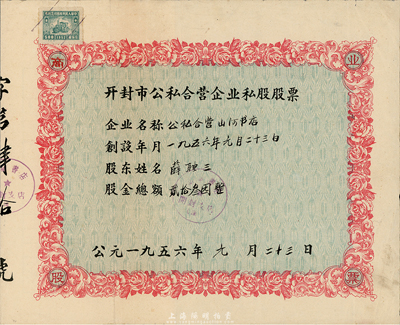 商 业
开封市公私合营企业私股股票
企业名称 公私合营山河书店
創設年月 一九五六年元月二十三日
股东姓名 薛聘三
股金總额 貳拾叁圆整
公元一九五六年 九 月 二十三 日
股 票
字第肆拾 號